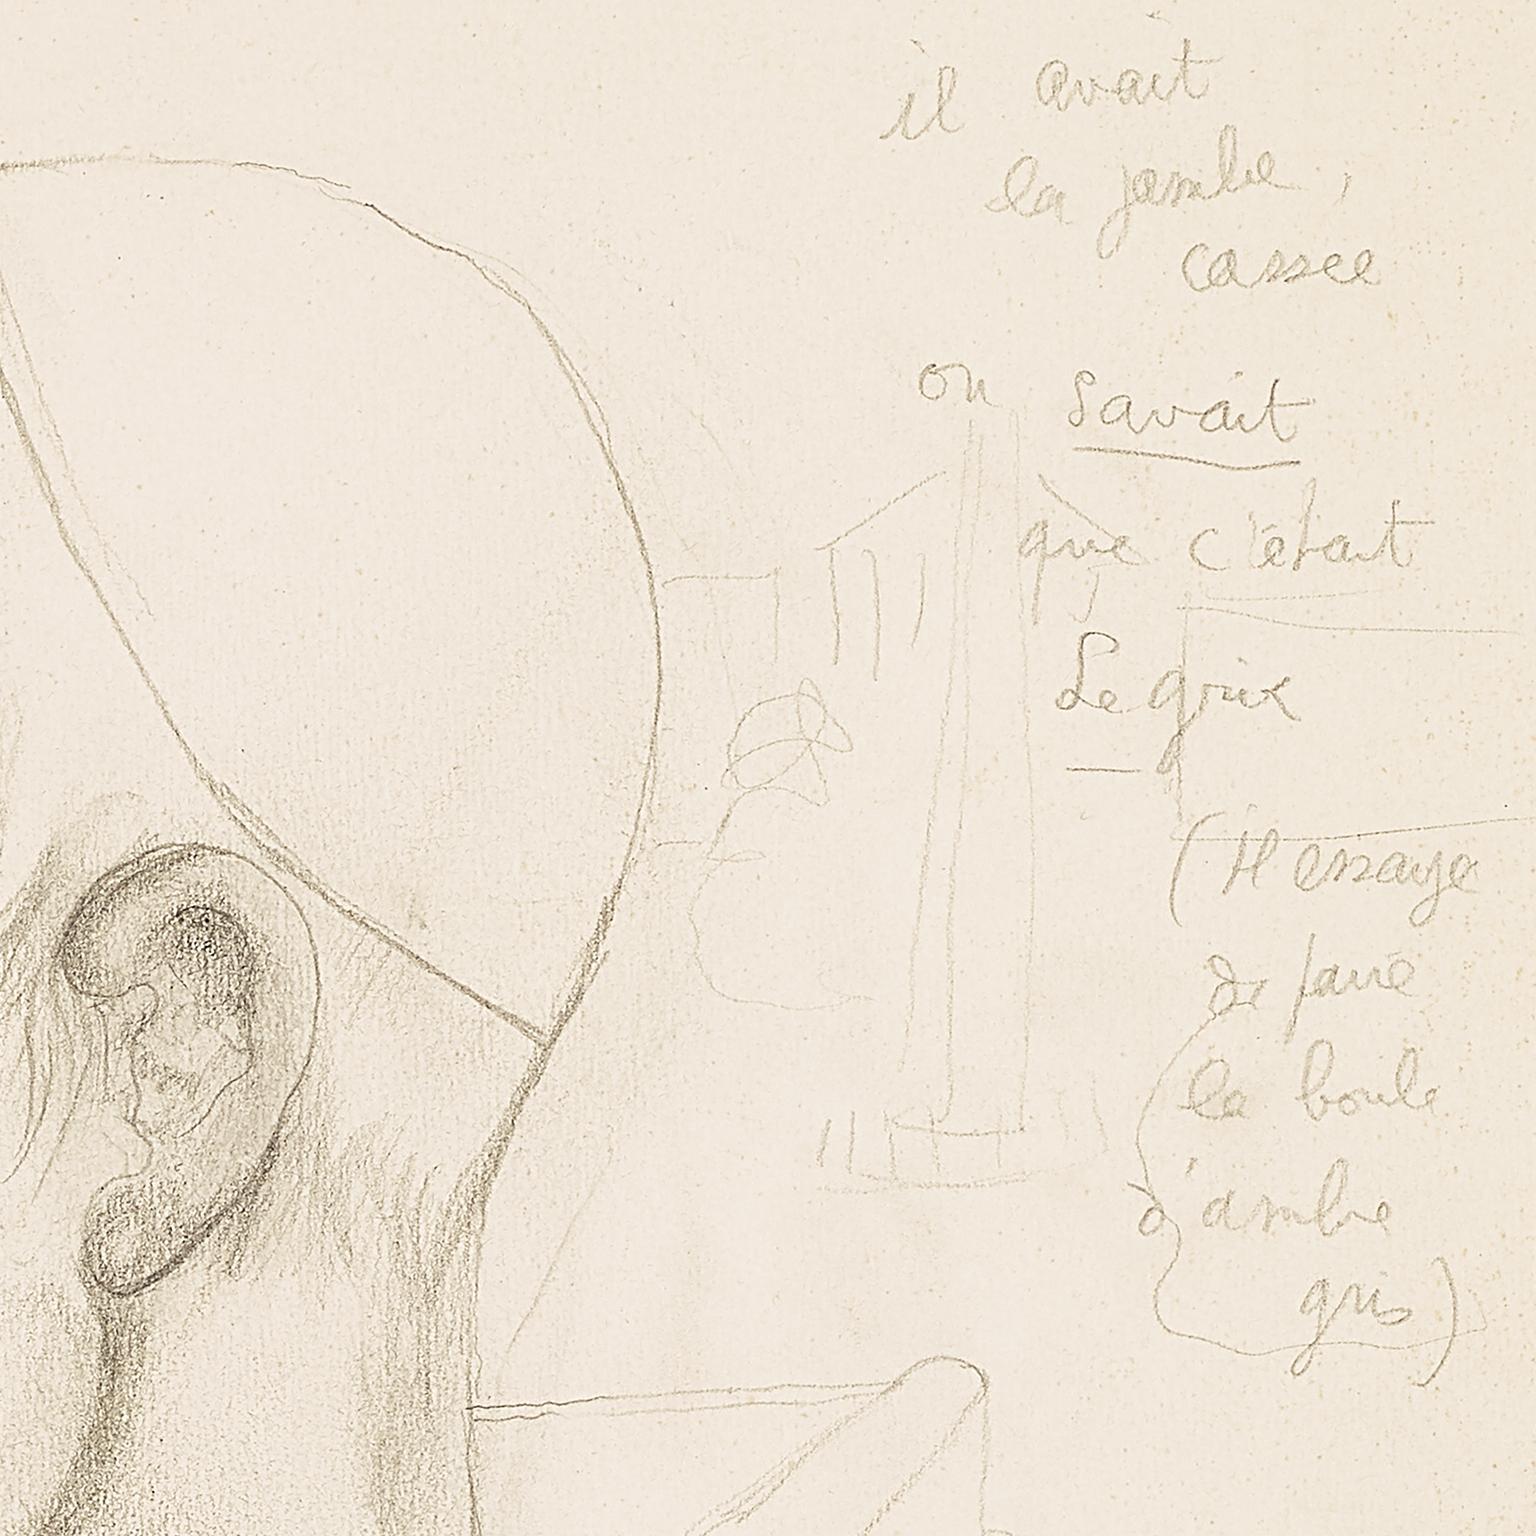 il avait
la jambe,
cassee
on savait
que c'était
Legrix
(Il essaye
de faire
la boule
d'ambre
gris)